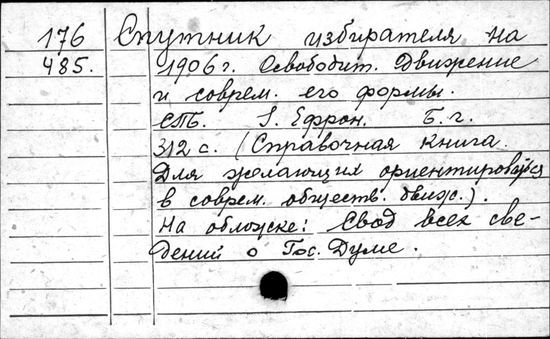 176 Спутник избирателя на
485. 1906 г. Освободит. Движение
и соврем. его формы.
СПБ. I. Ефрон. Б. г.
312 с. (Справочная книга.
Для желающих ориентироваться
в соврем. обществ. движ.).
На обложке: Свод всех све-
дений о Гос. Думе.